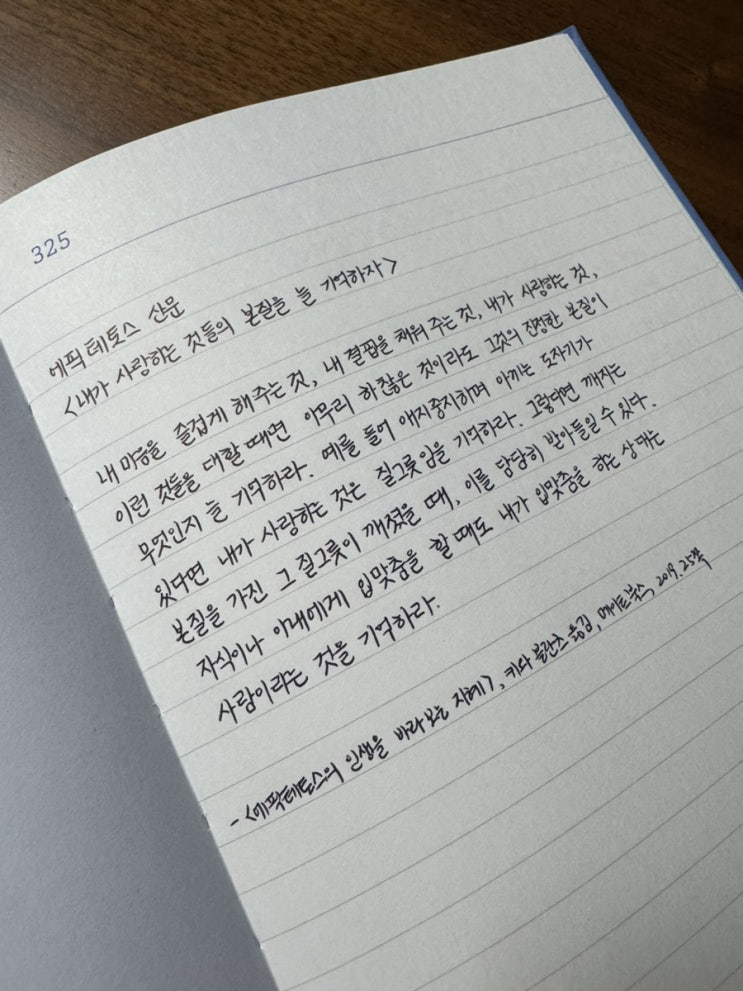 325
에픽테토스 산문
<내가 사랑하는 것들의 본질을 늘 기억하자>
내 마음을 즐겁게 해주는 것, 내 결핍을 채워 주는 것, 내가 사랑하는 것,
이런 것들을 대할 때면 아무리 하찮은 것이라도 그것의 진정한 본질이
무엇인지 늘 기억하라. 예를 들어 애지중지하며 아끼는 도자기가
있다면 내가 사랑하는 것은 질그릇임을 기억하라. 그렇다면 깨지는
본질을 가진 그 질그릇이 깨졌을 때, 이를 담담히 받아들일 수 있다.
자식이나 아내에게 입맞춤을 할 때도 내가 입맞춤을 하는 상대는
사람이라는 것을 기억하라.
- <에픽테토스의 인생을 바라보는 지혜>, 키와 블란츠 옮김, 메이트북스, 2019. 25쪽